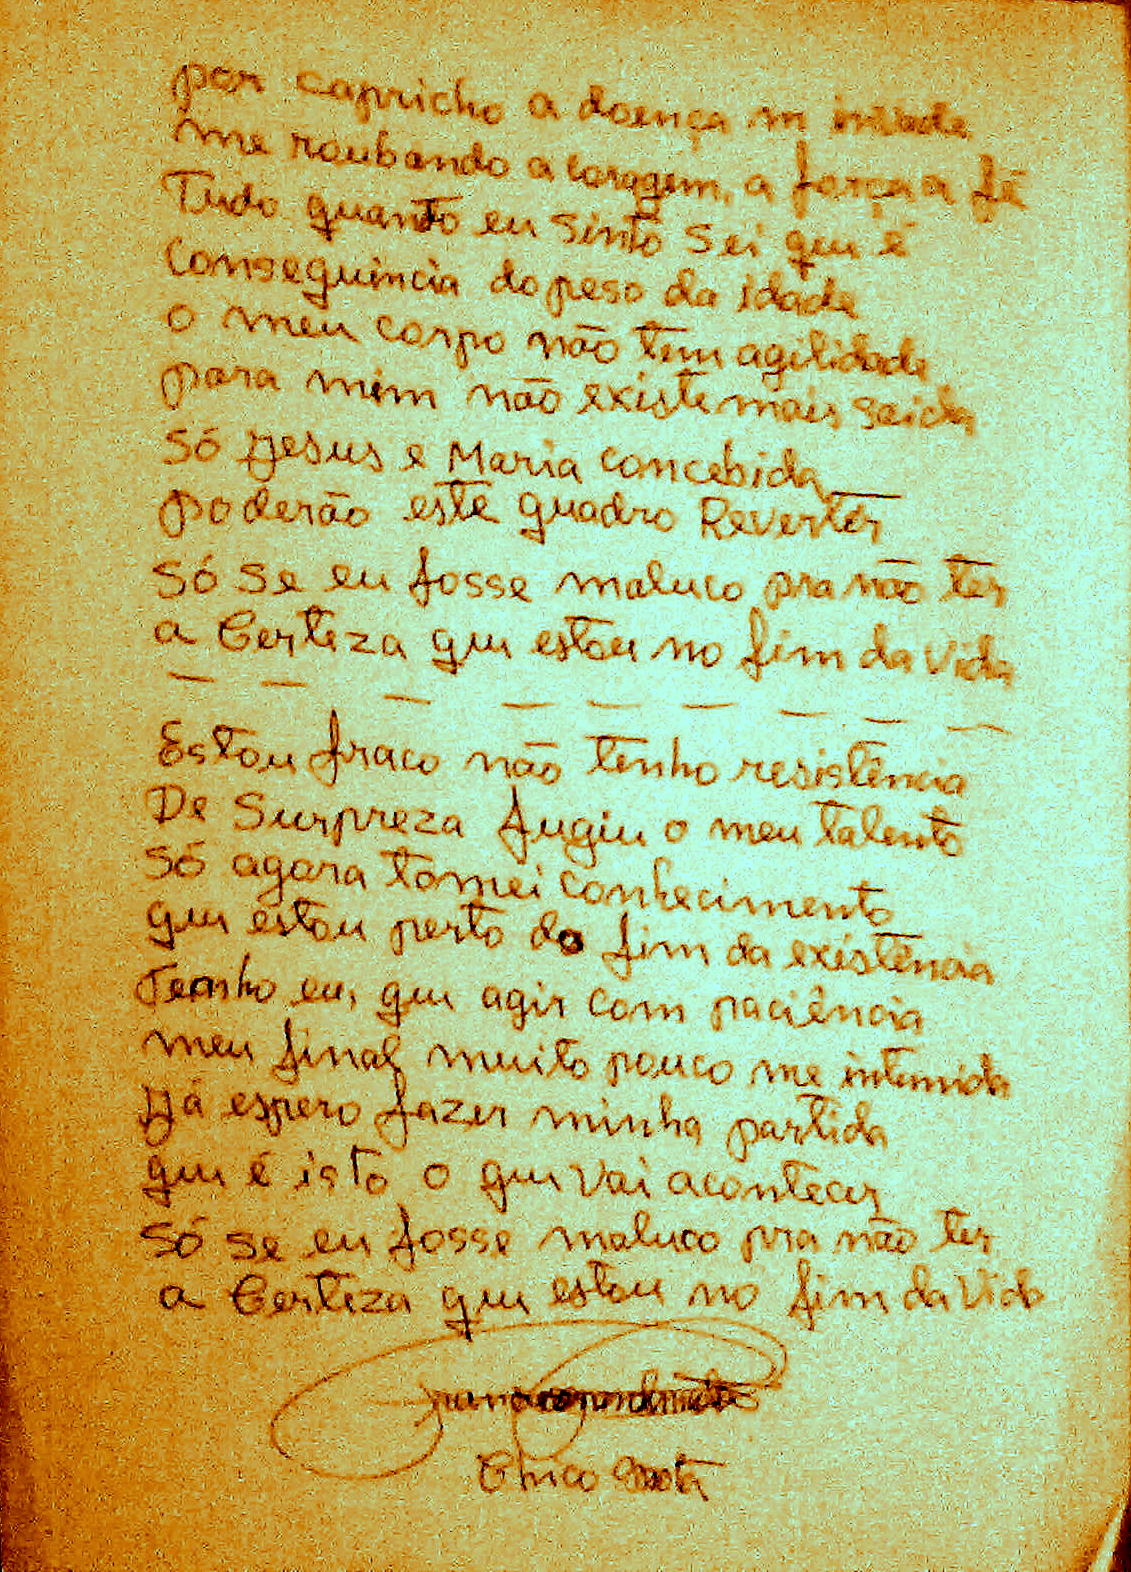 por capricho a doença m invade
me roubando a coragem, a força a fé
Tudo quanto eu sinto sei qui é
Conseguincia do peso da idade
o meu corpo não tem agilidade
para mim não existe mais saida
só Jesus e Maria concebida
poderão este quadro Reverter
só se eu fosse maluco pra não ter
a Certeza qui estou no fim da vida
— — — — — — — — —
Estou fraco não tenho resistência
De Surpreza fugiu o meu talento
só agora tomei conhecimento
qui estou perto do fim da existência
Tenho eu, qui agir com paciência
meu final muito pouco me intimida
Já espero fazer minha partida
qui é isto o qui vai acontecer
só se eu fosse maluco pra não ter
a Certeza qui estou no fim da vida
Chico